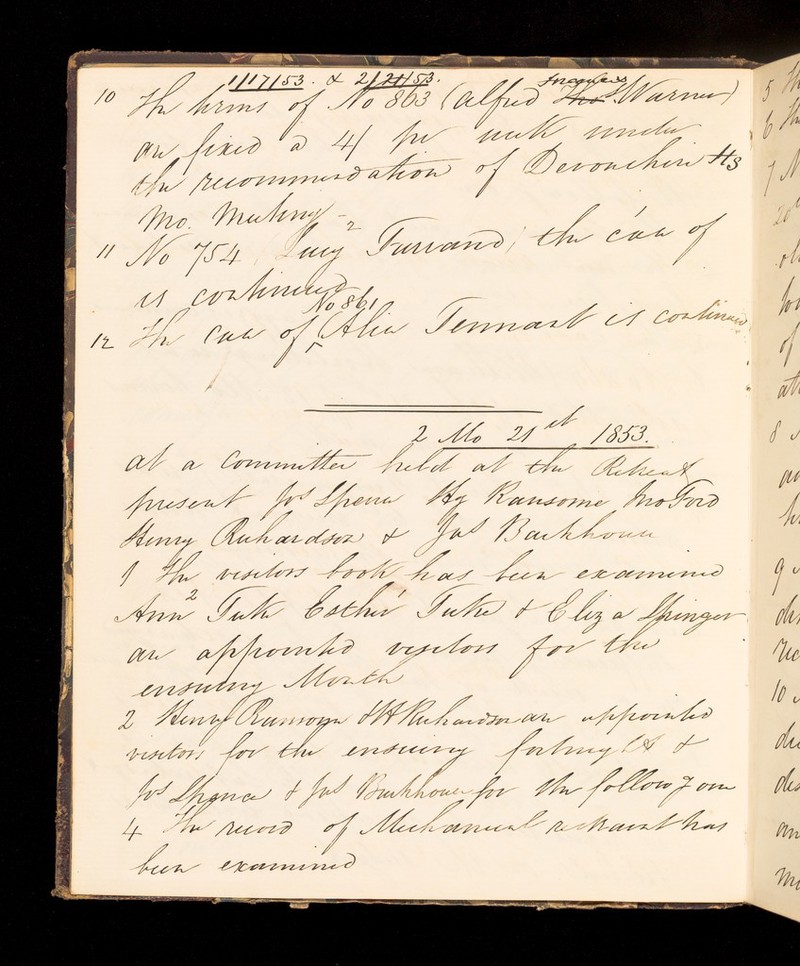 1/17/53. & 2/21/53.
10 The terms of No 863 (Alfred Tho S. Warner)
are fixed a 4/ per week under
the recommendation of Devonshire Hs
Mo. Meeting -
11 No 754 Lucy Farrand, the case of
is continued
No 861
12 The case of Alice Tennant is continued
2 Mo 21st 1853.
at a Committee held at the Retreat
present Jos Spence Hy Ransome Jno Ford
Henry Richardson & Jas Backhouse
1 The visitors book has been examined
Ann Tuke Esther Tuke & Eliza Stringer
are appointed visitors for the
ensuing Month
2 Henry Ransome & H Richardson are appointed
visitors for the ensuing fortnight &
Jos Spence & Jas Backhouse for the follow g one
4 The record of Mechanical restraint has
been examined